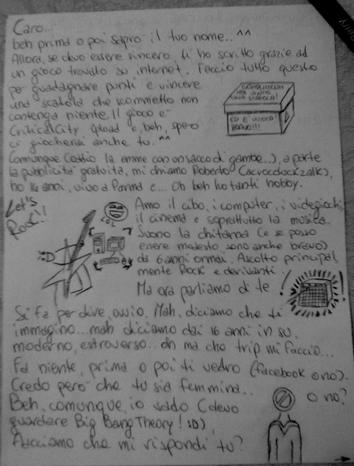 Caro...
beh prima o poi saprò il tuo nome.. ^^
Allora, se devo essere sincero ti ho scritto grazie ad
un gioco trovato su internet. Faccio tutto questo
per guadagnare punti e vincere
una scatola che scommetto non
contenga niente. Il gioco è
Critical City Upload e, beh, spero
ci giocherai anche tu. ^^
Comunque
a parte
la pubblicità gratuita, mi chiamo Roberto
ho 14 anni, vivo a Parma e... Oh beh ho tanti hobby.
Let's
Rock!!
Amo il cibo, i computer, i videogiochi,
il cinema e soprattutto la musica.
Suono la chitarra (e se posso
essere modesto sono anche bravo)
da 6 anni ormai. Ascolto principal
mente Rock e derivanti.
Ma ora parliamo di te
Si fa per dire, ovvio. Mah, diciamo che ti
immagino... mah diciamo dai 16 anni in su,
moderno, estroverso... oh ma che trip mi faccio...
Fa niente, prima o poi ti vedrò (facebook o no).
Credo però che tu sia femmina..
o no?
Beh, comunque, io vado (devo
guardare Big Bang Theory! :D)
Facciamo che mi rispondi tu?